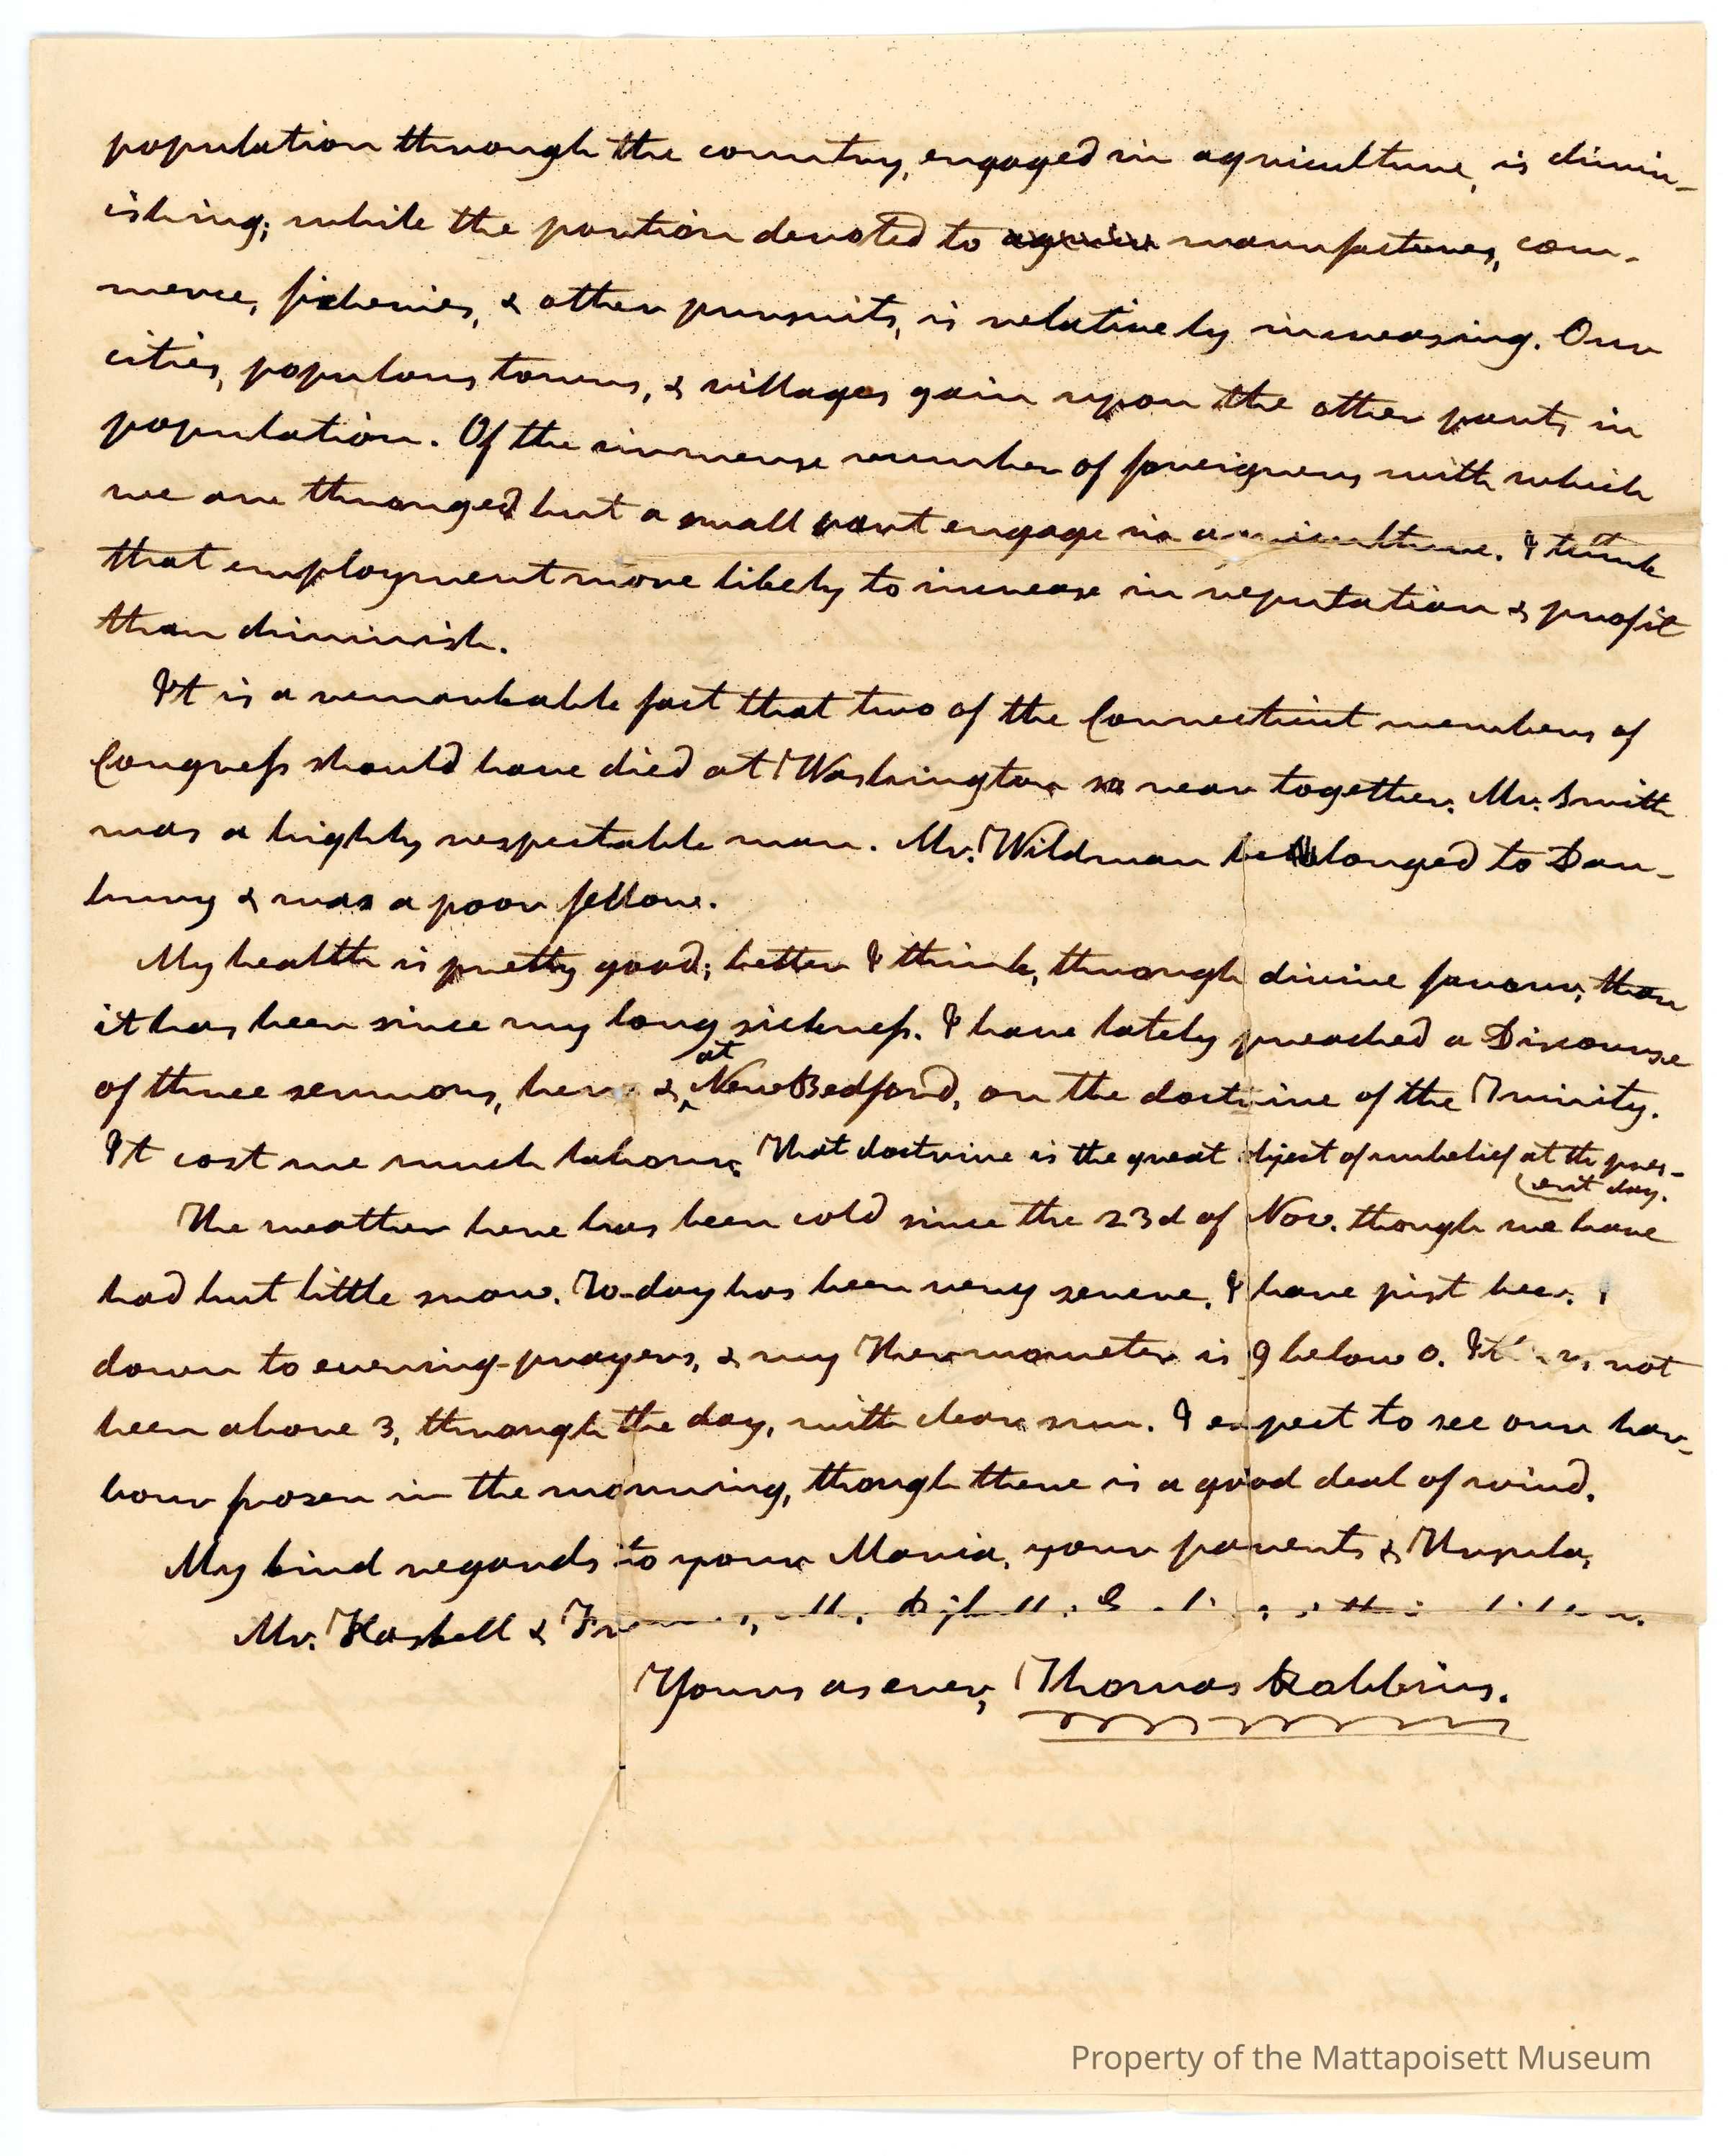 population through the country, engaged in agriculture, is dimin-
ishing; while the portion devoted to manufactures, com-
merce, fisheries, & other pursuits, is relatively increasing. Our
cities, populous towns, & villages gain upon the other parts in
population. Of the immense number of foreigners with which
we are thronged but a small part engage in agriculture. I think
that employment more likely to increase in reputation & profit
than diminish.
It is a remarkable fact that two of the Connecticut members of
Congress should have died at Washington so near together. Mr. Smith
was a highly respectable man. Mr. Wildman belonged to Dan-
bury & was a poor fellow.
My health is pretty good; better I think, through divine favour, than
it has been since my long sickness. I have lately preached a Discourse
of three sermons, here & at New Bedford, on the doctrine of the Trinity.
It cost me much labour. That doctrine is the great object of unbelief at the pres-
ent day.
The weather here has been cold since the 23d of Nov. though we have
had but little snow. To-day has been very severe. I have just been
down to evening-prayers, & my Thermometer is 9 below 0. It has not
been above 3, through the day, with clear sun. I expect to see our har-
bour frozen in the morning, though there is a good deal of wind.
My kind regards to your Maria, your parents & Ursula,
Mr. Haskell &
Yours as ever, Thomas Robbins.
Property of the Mattapoisett Museum